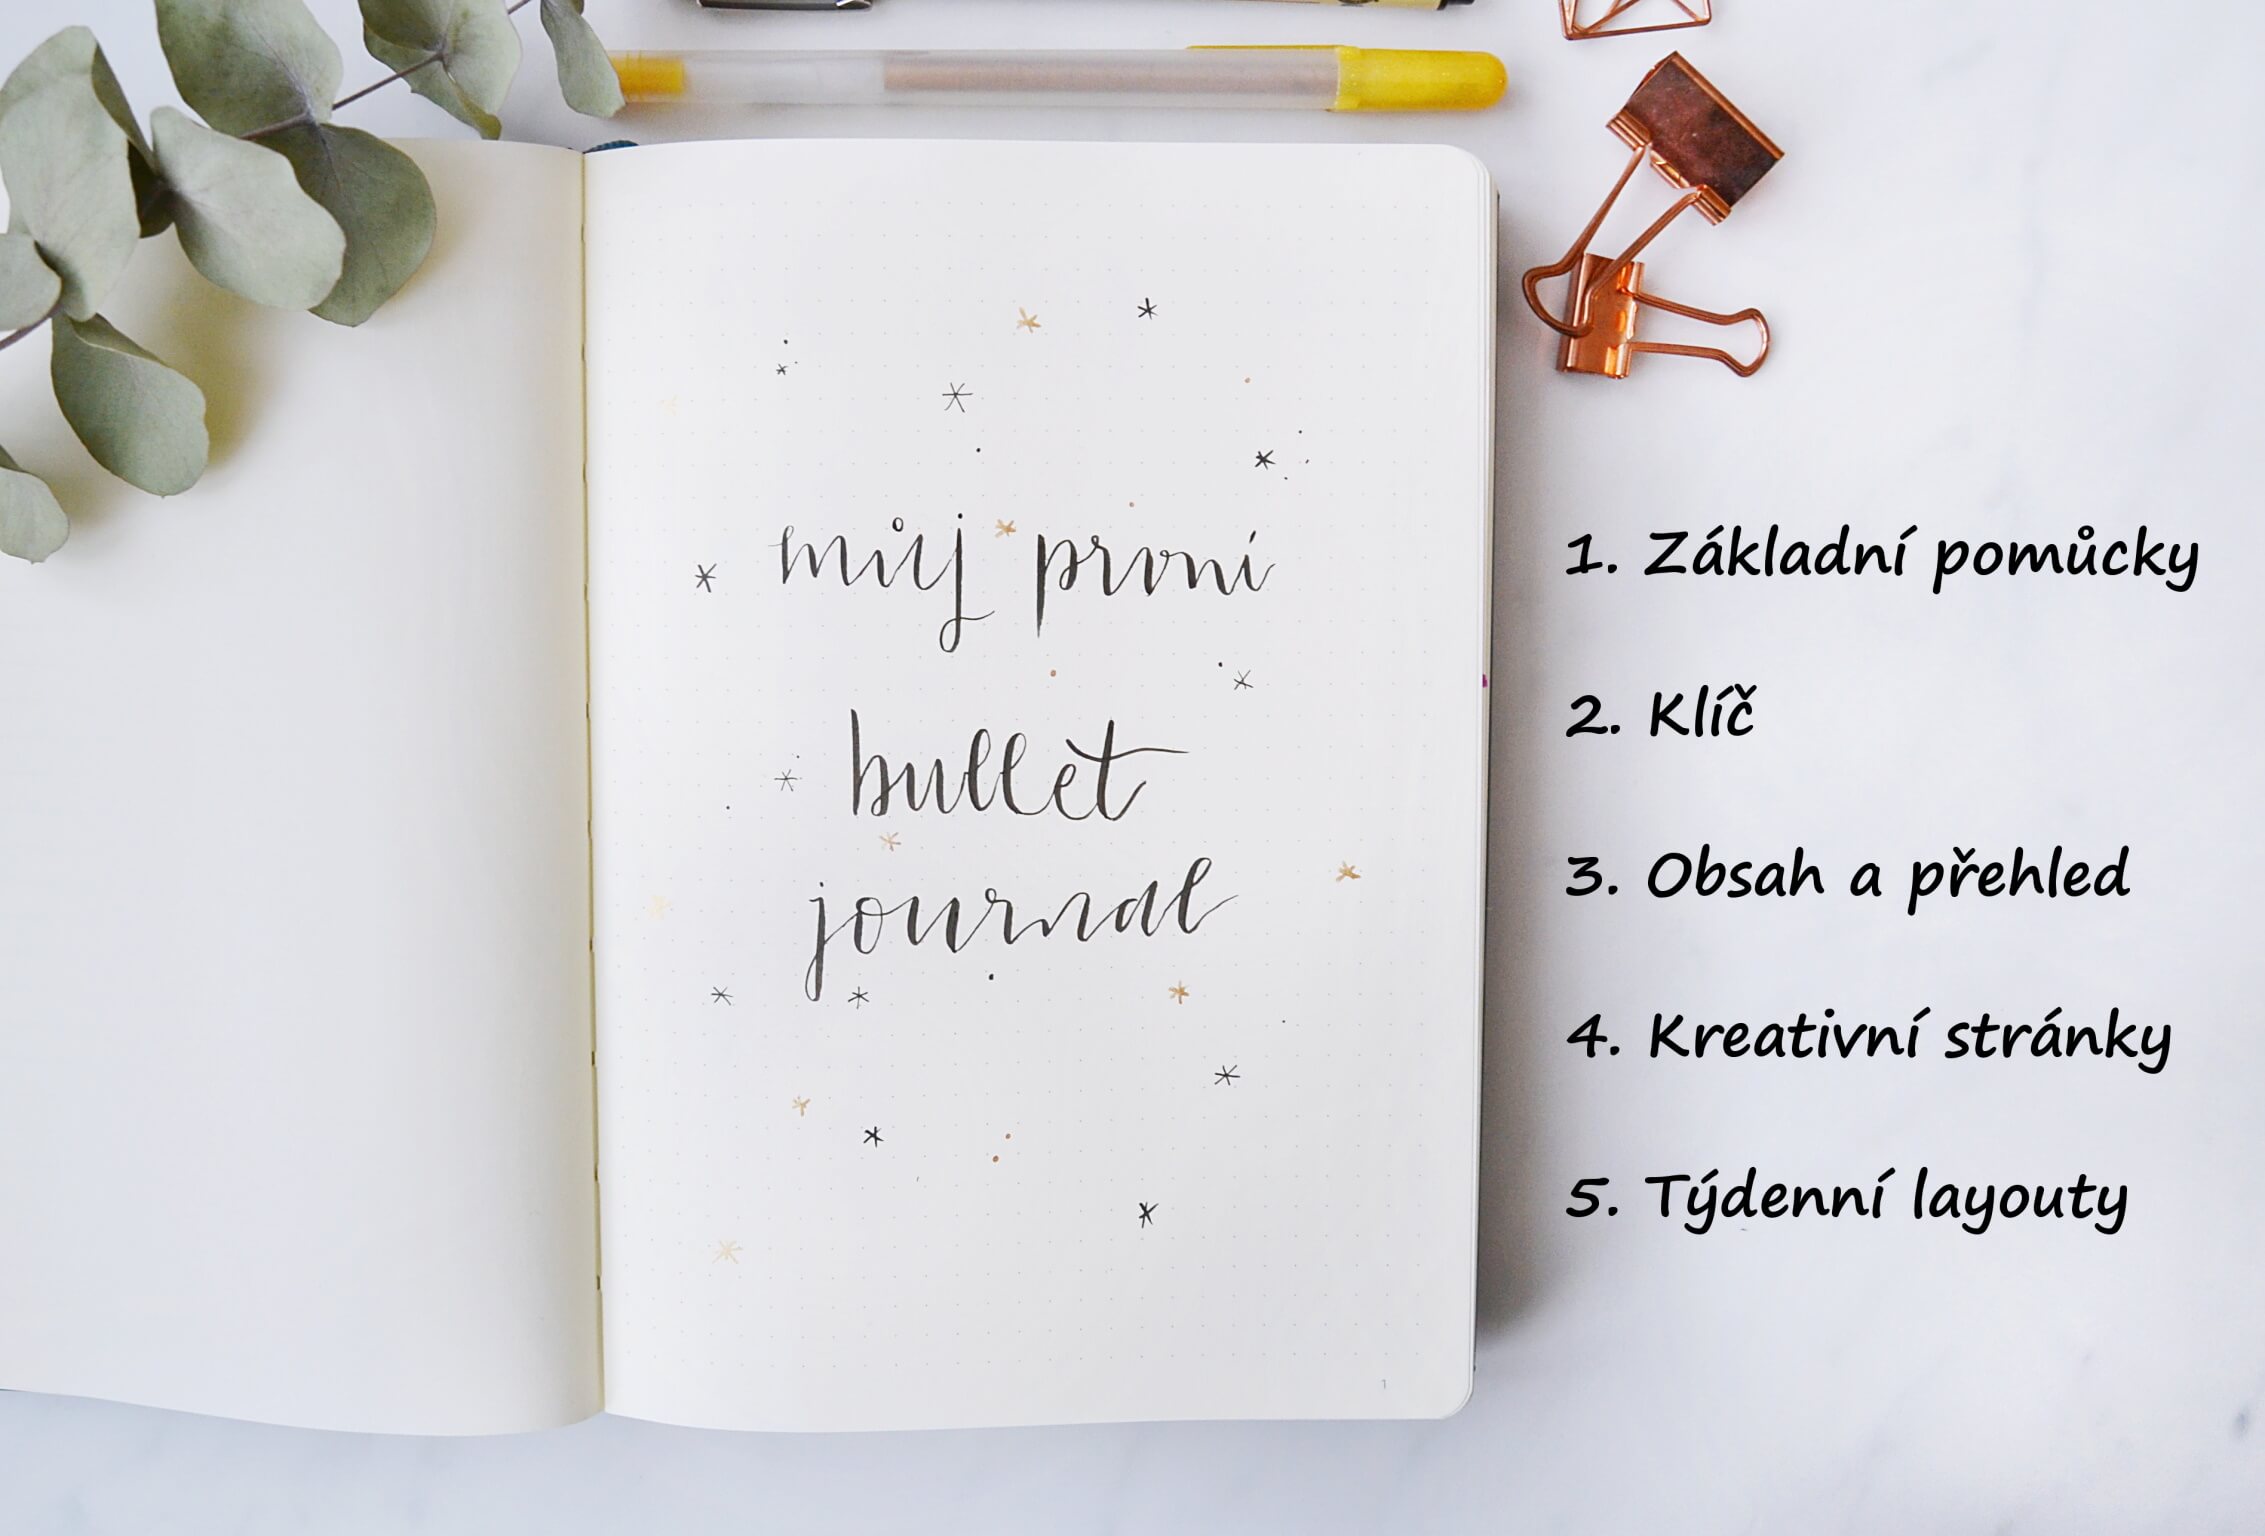 můj první
bullet
journal
1
1. Základní pomůcky
2. Klíč
3. Obsah a přehled
4. Kreativní stránky
5. Týdenní layouty